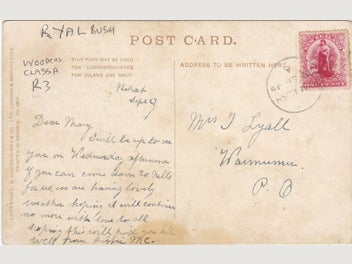 RYAL BUSH
WOODEN
CLASS A
R3
POST CARD.
THIS PART MAY BE USED
FOR CORRESPONDENCE.
FOR INLAND USE ONLY.
ADDRESS TO BE WRITTEN HERE.
Sept 27
Dear May,
I will be up to see
you on Wednesday afternoon
if you can come down to
for us, we are having lovely
weather hoping it will continue
no more with love to all
hoping this will find you all
well from Mc.
ONE PENNY
Mrs T Lyall
Waimumu
P. O